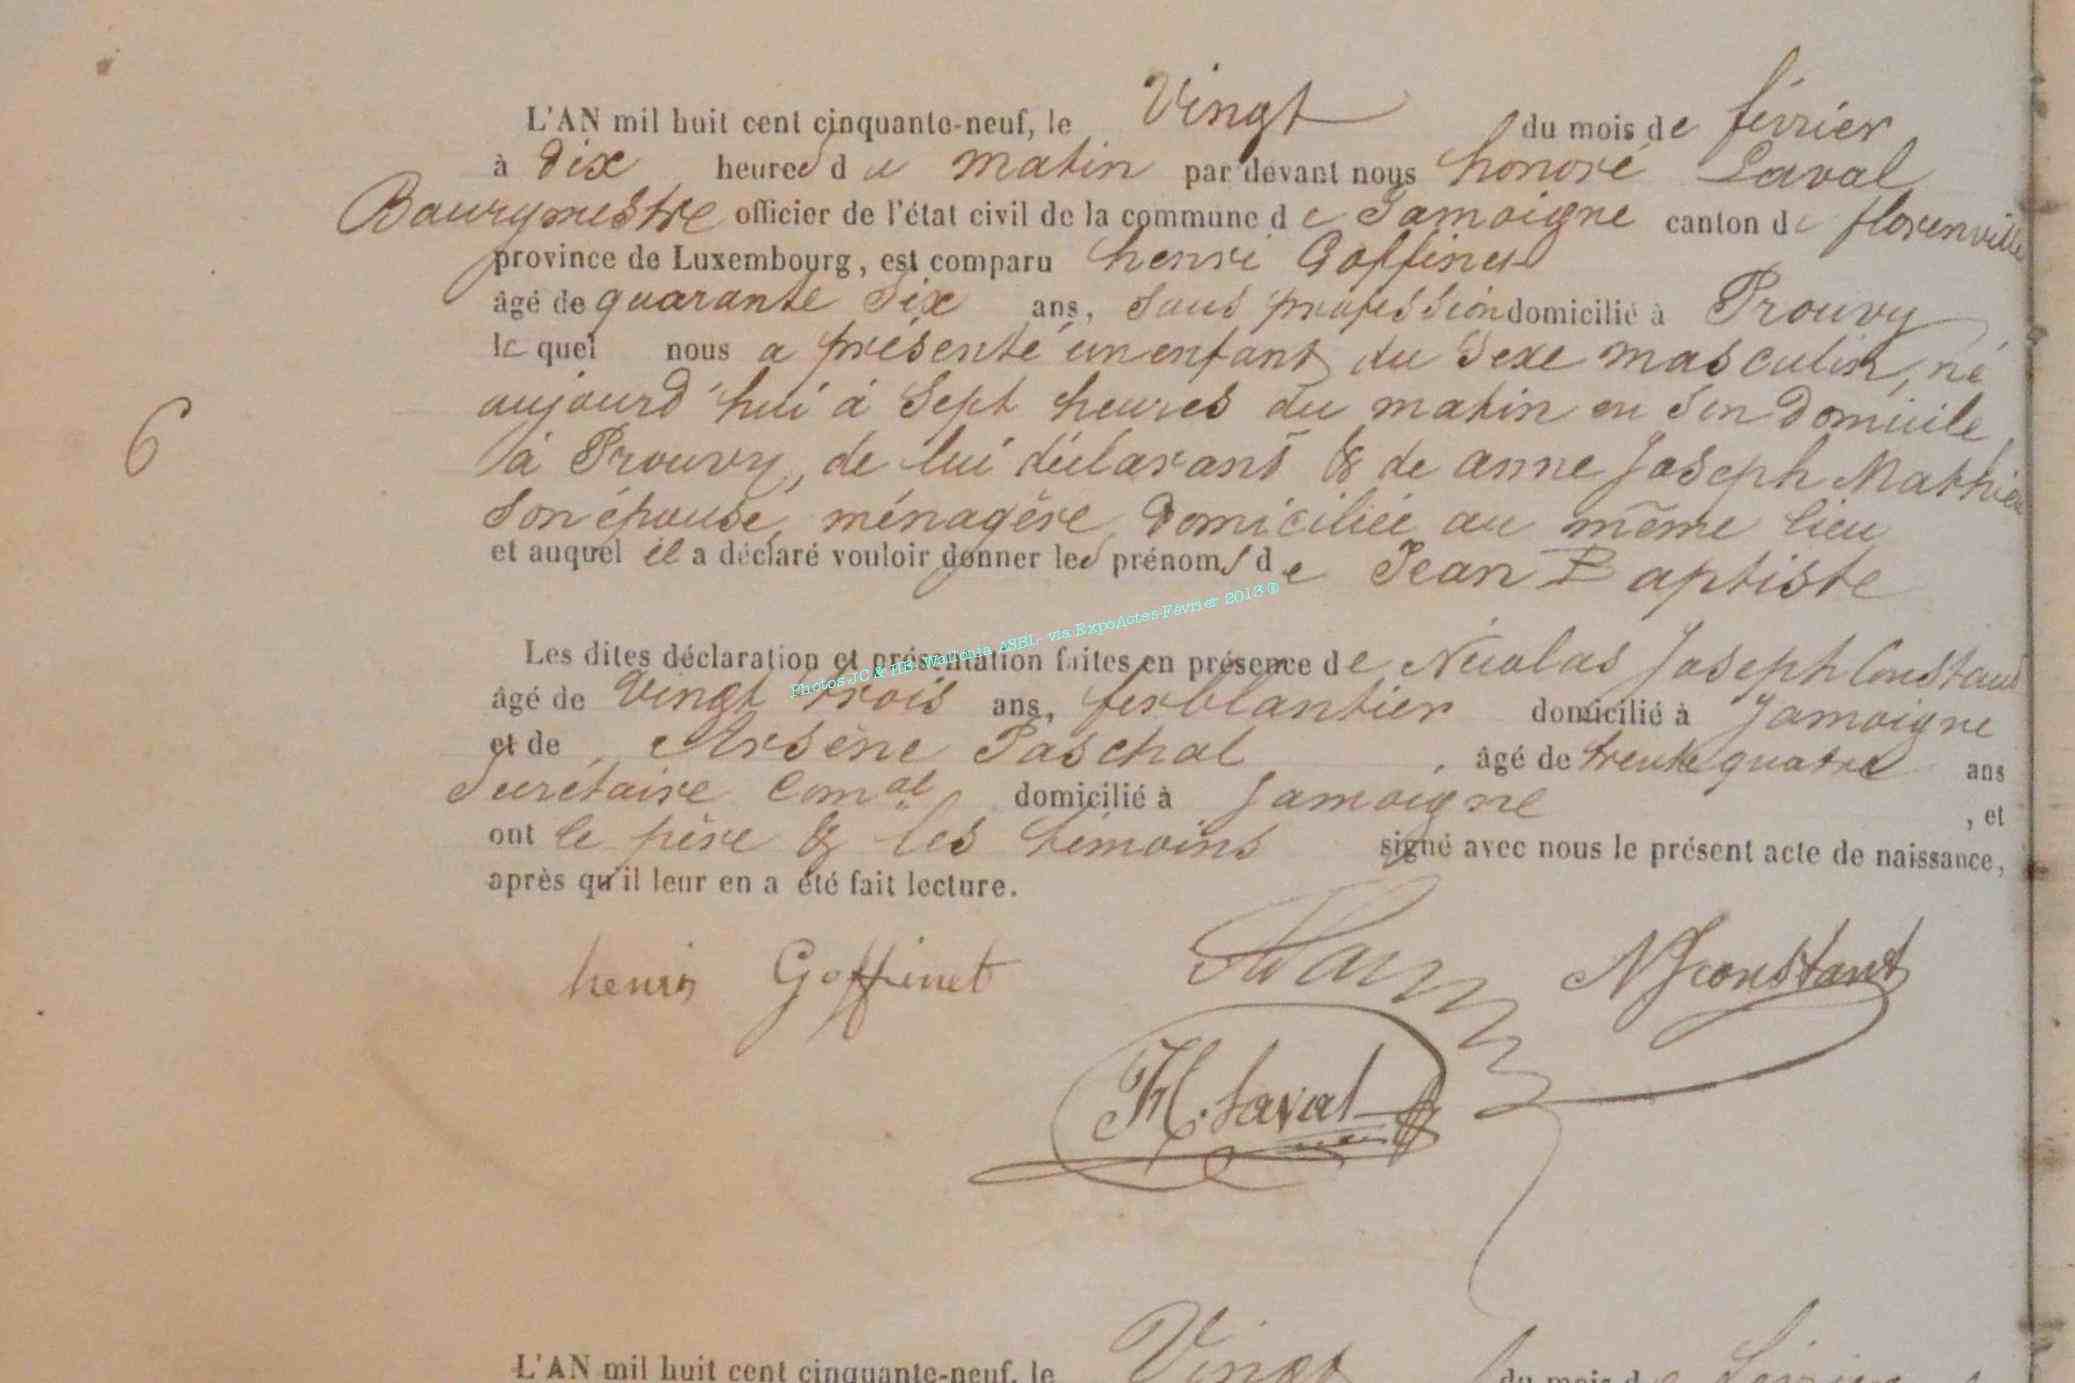 L'AN mil huit cent cinquante-neuf, le Vingt du mois de février
à dix heures du matin par devant nous honoré Laval
Bourgmestre officier de l'état civil de la commune de Jamoigne canton de florenville
province de Luxembourg, est comparu henri Goffinet
âgé de quarante six ans, sans profession domicilié à Prouvy
lequel nous a présenté un enfant du sexe masculin, né
aujourd'hui à sept heures du matin en son domicile
à Prouvy, de lui déclarant & de anne Joseph Mathieu
son épouse, ménagère, domiciliée au même lieu
et auquel il a déclaré vouloir donner les prénoms de Jean Baptiste
Photos JC & HB. Wallonia ASBL- via ExpoActes-Février 2013 ©
Les dites déclaration et présentation faites en présence de Nicolas Joseph Constant
6
âgé de Vingt trois ans, ferblantier domicilié à Jamoigne
et de Arsène Paschal, âgé de trente quatre ans
Secrétaire Comal domicilié à Jamoigne, et
ont le père & les témoins signé avec nous le présent acte de naissance,
après qu'il leur en a été fait lecture.
henri Goffinet NJ Constant
H. Laval
L'AN mil huit cent cinquante-neuf, le Vingt du mois de février